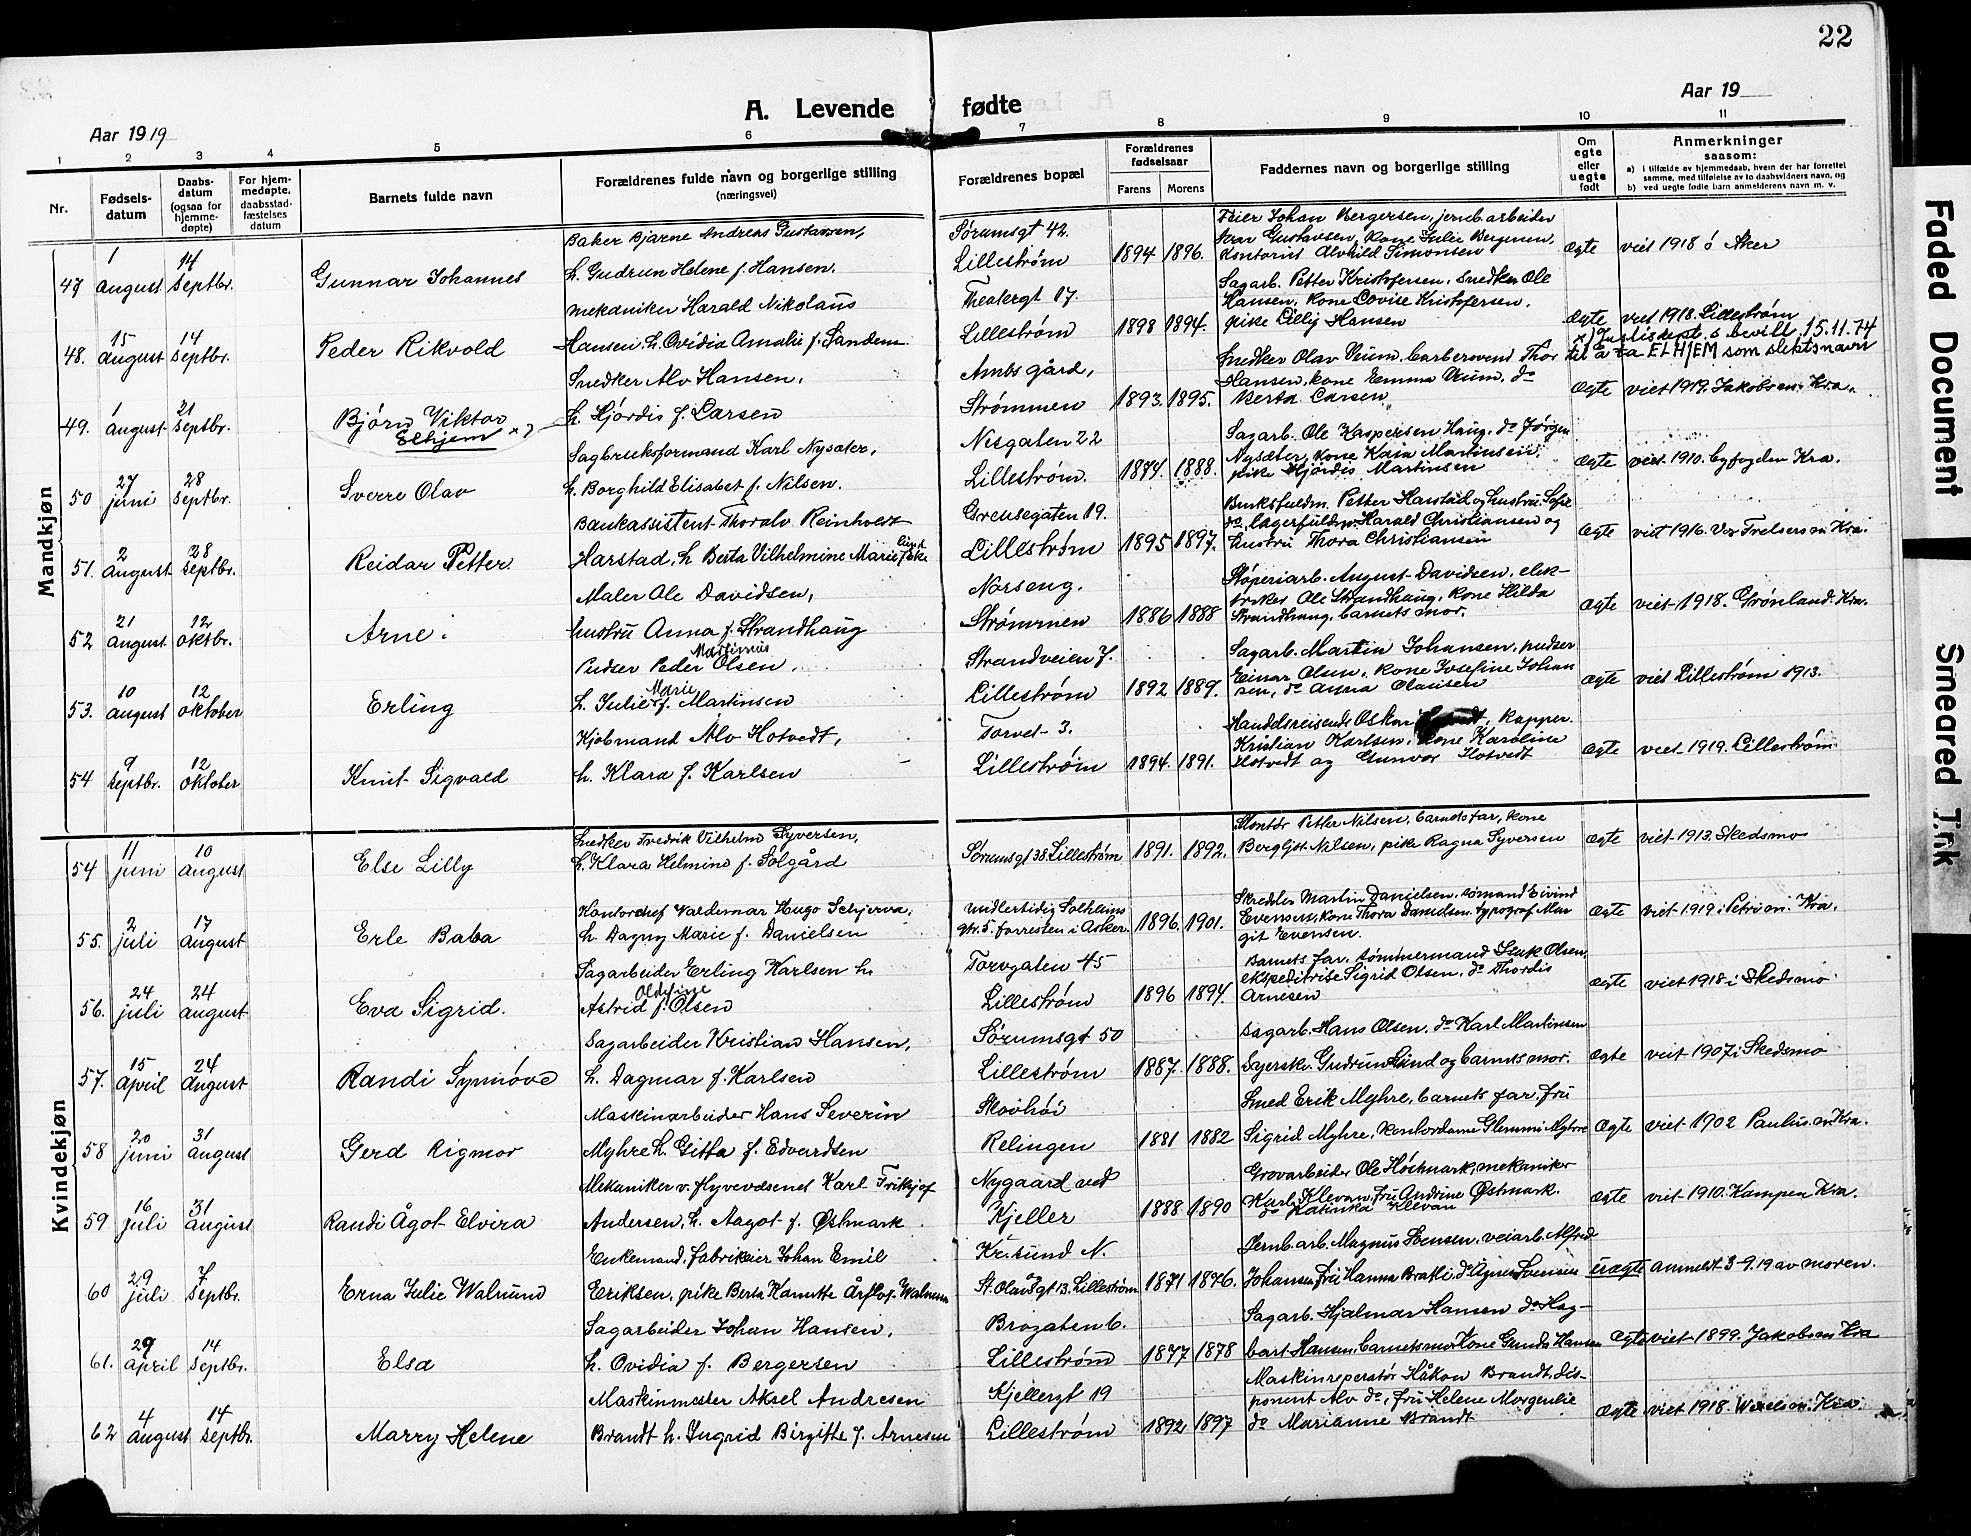 22
A. Levende fødte
Aar 1919
Aar 19
1 2 3 4 5 6 7 8 9 10 11
Nr.
Fødsels-
datum
Daabs-
datum
(ogsaa for
hjemme-
døpte)
For hjem-
medøpte,
daabsstad-
fæstelses
datum
Barnets fulde navn
Forældrenes fulde navn og borgerlige stilling
(næringsvei)
Forældrenes bopæl
Forældrenes
fødselsaar
Farens Morens
Faddernes navn og borgerlige stilling
Om
egte
eller
uegte
født
Anmerkninger
saasom:
a) i tilfælde av hjemmedaab, hvem der har forrettet
samme, med tilføielse av to daabsvidners navn, og
b) ved uegte fødte barn anmelderens navn m. v.
Mandkjøn
47 1 august 14 Septbr. Gunnar Johannes
Baker Bjarne Andreas Gustavsen,
h. Gudrun Helene f. Hansen.
Sørumsgt 42.
Lillestrøm 1894 1896.
Feier Johan Bergersen, jernb.arbeider
Ivar Gustavsen, kone Julie Bergersen,
Kontorist Alvhild Simonsen
Ægte viet 1918 i Aker
48. 15 august 14 Septbr. Peder Rikvold
Mekaniker Harald Nikolaus
Hansen, h. Ovidia Amalie f. Sandem
Theatergt 17.
Lillestrøm 1898 1894.
Sagarb. Petter Kristofersen, Snedker Ole
Hansen, kone Lovise Kristofersen,
pike Lilly Hansen
Ægte viet 1918. Lillestrøm
x) Justisdept.s bevill. 15.11.74
til å ta ELHJEM som slektsnavn
49. 1 august 21 Septbr. Bjørn Viktor
Elhjem x)
Snedker Alv Hansen,
h. Hjørdis f. Larsen
Ambs gård,
Strømmen 1893. 1895.
Snedker Olav Urum, Thor
Hansen, kone Emma Urum, do
Berta Larsen,
Ægte viet 1919. Jakobs m. Kra.
50 27 juni 28 Septbr. Sverre Olav
Sagbruksformand Karl Nysæter,
h. Borghild Elisabet f. Nilsen.
Nesgaten 22
Lillestrøm. 1874. 1888.
Sagarb. Ole Kaspersen Haug, do Jørgen
Nysæter, kone Kaia Martinsen,
pike Hjørdis Martinsen
Ægte viet 1910. byfogden Kra.
51. 2 august 28 Septbr. Reidar Petter
Bankassistent Thoralv Reinholdt
Harstad, h. Berta Vilhelmine Marie f.
Grensegaten 19.
Lillestrøm 1895 1897.
Bruksfuldm. Petter Harstad og hustru Sofie
do, lagerfuldm. Harald Christiansen og
hustru Thora Christiansen
Ægte viet 1916. Vor Frelsers m. Kra.
52 21 august 12 oktbr. Arne
Maler Ole Davidsen,
hustru Anna f. Strandhaug
Norseng.
Strømmen 1886 1888
Støperiarb. August Davidsen, elek-
triker Ole Strandhaug, kone Hilda
Strandhaug, barnets mor.
Ægte viet 1918. Grønland. Kra.
53. 10 august 12 oktober Erling
Pudser Peder Martinius Olsen,
h. Julie Marie f. Martinsen
Strandveien 7.
Lillestrøm 1892 1889.
Sagarb. Martin Johansen, pudser
Einar Olsen, kone Josefine Johan
sen, do Anna Olausen
Ægte viet Lillestrøm 1913.
54 9 Septbr. 12 oktober Knut Sigvald
Kjøbmand Alv Hotvedt,
h. Klara f. Karlsen
Torvet 3.
Lillestrøm 1894. 1891.
Handelsreisende Oskar Kapper
Kristian Karlsen, kone Karoline
Hotvedt og Gunvor Hotvedt
Ægte viet. 1919. Lillestrøm
Kvindekjøn
54 11 juni 10 august Else Lilly
Snedker Fredrik Vilhelm Syversen,
h. Klara Helmine f. Solgård
Sørumsgt 38. Lillestrøm 1891. 1892.
Montør Petter Nilsen, barnets far, kone
Bergljot Nilsen, pike Ragna Syversen
Ægte viet 1913. Skedsmo
55. 2 juli 17 august Erle Baba
Kontorchef Valdemar Hugo Schjerva,
h. Dagny Marie f. Danielsen
midlertidig Solheims
gt. 5. forresten i Asker. 1896. 1901.
Skredder Martin Danielsen, sømand Eivind
Evensen, kone Thora Danielsen, typograf Mar
git Evensen.
Ægte viet 1919 i Petri m. Kra.
56. 24 juli 24 august Eva Sigrid.
Sagarbeider Erling Karlsen h.
Astrid Oldfine f. Olsen
Torvgaten 45
Lillestrøm 1896 1894.
Barnets far, tømmermand Isak Olsen,
ekspeditrise Sigrid Olsen, do Thordis
Arnesen
Ægte viet 1918 i Skedsmo
57. 15 april 24 august Randi Synnøve
Sagarbeider Kristian Hansen,
h. Dagmar f. Karlsen
Sørumsgt 50
Lillestrøm 1887. 1888.
Sagarb. Hans Olsen, do Karl Martinsen
Syersk. Gudrun Lund og barnets mor.
Ægte viet 1907 i Skedsmo
58 20 juni 31 august Gerd Rigmor
Maskinarbeider Hans Severin
Myhre h. Gitta f. Edvardsen
Skovhøi
Rælingen 1881 1882
Smed Erik Myhre, barnets far, fru
Sigrid Myhre, kontordame Myhre
Ægte viet 1902 Paulus m. Kra.
59. 16 juli 31 august Randi Ågot Elvira
Mekaniker v. flyvevæsenet Karl Fritjof
Andersen, h. Aagot f. Østmark
Nygaard ved
Kjeller 1888 1890
Grovarbeider Ole Høstmark, mekaniker
Karl Klevan, fru Andrine Østmark.
do Katinka Klevan
Ægte viet 1910. Kampen Kra.
60 29 juli 7 Septbr. Erna Julie Walrund
Enkemand, fabrikeier Johan Emil
Eriksen, pike Berta
Kr.sund N.
St. Olavsgt 13. Lillestrøm 1871 1876.
Jernb.arb. Magnus Svensen, veiarb. Alfred
Johansen, fru Hanna Bratli, do Agnes Svensen
uægte anmeldt 3-9.19 av moren.
61. 29 april 14 Septbr. Elsa
Sagarbeider Johan Hansen,
h. Ovidia f. Bergersen
Brogaten 6.
Lillestrøm 1877 1878
Sagarb. Hjalmar Hansen do Hag-
bart Hansen, barnets mor, kone Gunda Hansen
Ægte viet 1899. Jakobs m. Kra
62 4 august 14 Septbr. Marry Helene
Maskinmester Aksel Andresen
Brandt h. Ingrid Birgitte f. Arnesen
Kjellergt 19
Lillestrøm 1892 1897
Maskinreperatør Håkon Brandt, dis-
ponent Alv do, fru Helene Morgenlie
do Marianne Brandt
Ægte viet 1918. Kra.
Faded Document Smeared Ink